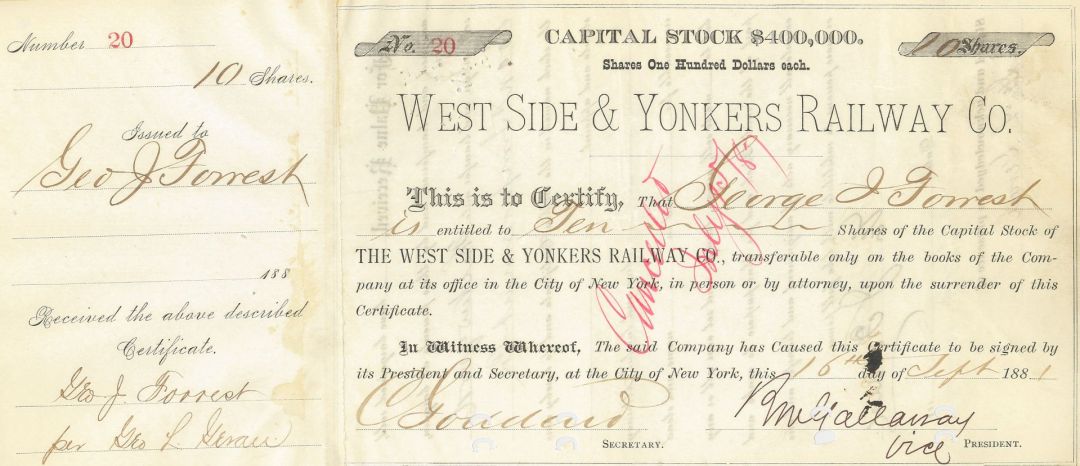 Number 20
10 Shares.
Issued to
Geo J Forrest
188
Received the above described
Certificate.
Geo J. Forrest
per Geo L
No. 20
CAPITAL STOCK $400,000.
10 Shares.
Shares One Hundred Dollars each.
WEST SIDE & YONKERS RAILWAY CO.
This is to Certify, That George J Forrest
is entitled to Ten Shares of the Capital Stock of
THE WEST SIDE & YONKERS RAILWAY CO., transferable only on the books of the Com-
pany at its office in the City of New York, in person or by attorney, upon the surrender of this
Certificate.
Cancelled
July
In Witness Whereof, The said Company has Caused this Certificate to be signed by
its President and Secretary, at the City of New York, this 16th day of Sept 1881
SECRETARY.
R M Gallaway
Vice PRESIDENT.